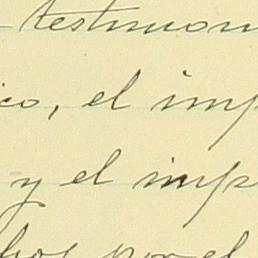 testimon
ico, el imp
y el imp
hos por el